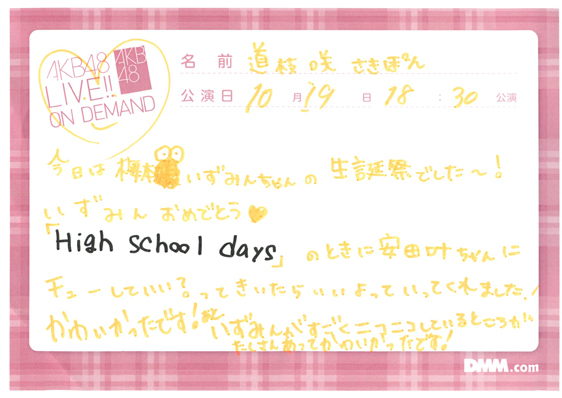 AKB48
LIVE!!
ON DEMAND
AKB
48
名前 道枝咲 さきぽん
公演日 10月19日 18:30 公演
今日は榎本いずみんちゃんの生誕祭でした〜!
いずみんおめでとう
「High school days」のときに安田叶ちゃんに
チューしていい?ってきいたらいいよっていってくれました!
かわいかったです!あと いずみんがすごくニコニコしているところが
たくさんあってかわいかったです!
DMM.com